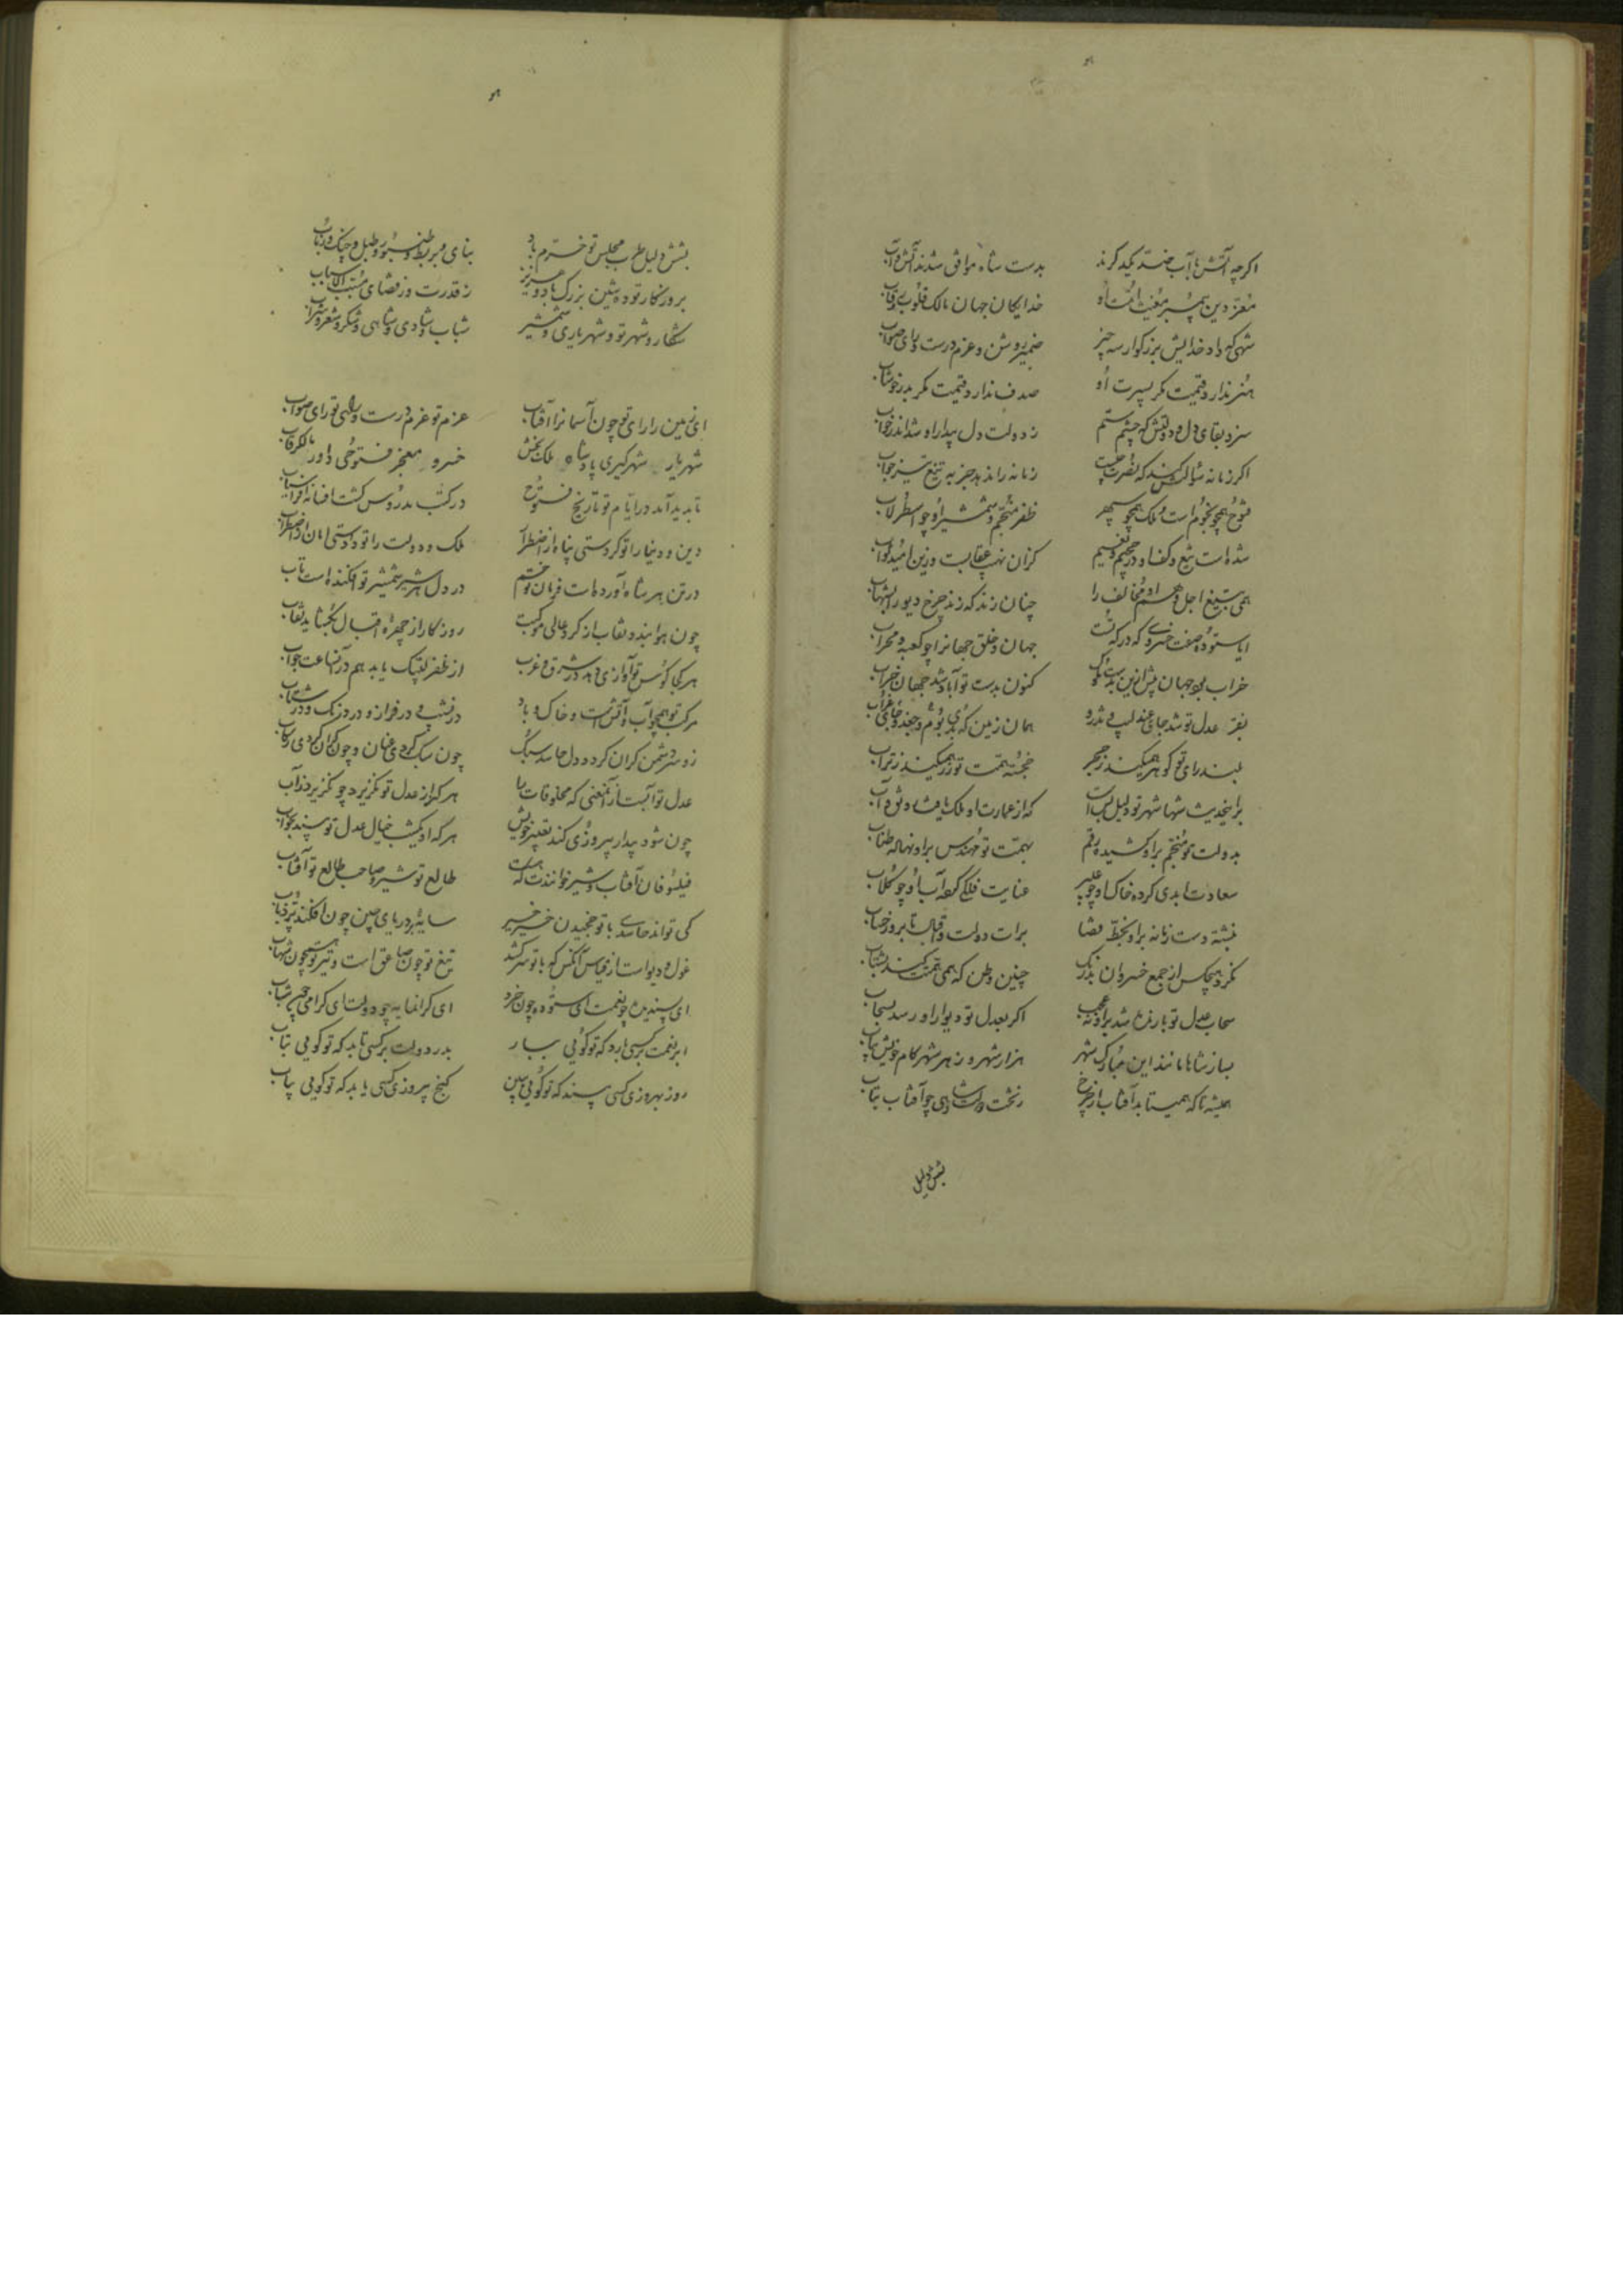 اگرچه آتش با آب ضد یکدگرند
بدست شاه موافق شدند آتش و آب
معز دین پیمبر مغیث امت او
خدایگان جهان مالک قلوب و رقاب
شهی که داد خدایش بزرگوار سه چیز
ضمیر روشن و عزم درست و رای صواب
هنر ندارد قیمت مگر بسیرت او
صدف ندارد قیمت مگر بدر خوشاب
سزد بقای دل و دولتش که چشم ستم
ز دولت دل بیدار او شد اندر خواب
اگر زمانه سؤال کند که نصرت چیست
زمانه را ندهد جز به تیغ تیز جواب
فتوح همچو نجوم است و ملک همچو سپهر
ظفر منجم و شمشیر او چو اسطرلاب
شده است تیغ و کف او جحیم و نعیم
کزان نهیب عقابست وزین امید ثواب
همی بتیغ اجل مخالف را
چنان زند که زند چرخ دیو را بشهاب
ایا ستوده صفت خسروی که درگه تست
جهان و خلق جهانرا چو کعبه و محراب
خراب بود جهان پیش ازین بدست ملوک
کنون بدست تو آباد شد جهان خراب
بفر عدل تو شد جای عندلیب و تذرو
همان زمین که بدی بوم و جغد و جای غراب
بلند رای تو گوهر همیکند ز حجر
خجسته همت تو زر همیکند ز تراب
براینحدیث شها شهر تو دلیل بس است
که از عمارت او ملک یافت رونق و آب
بدولت تو منجم براو کشیده رقم
بهمت تو مهندس براو نهاده طناب
سعادت ابدی کرده خاک او چو عبیر
عنایت فلکی کرده آب او چو گلاب
نبشته دست زمانه براو بخط قضا
برات دولت و اقبال تا بروز حساب
نکرد هیچکس از جمع خسروان بزرگ
چنین وطن که همی همتت کند بشتاب
سحاب عدل تو بارنده شد براو نه عجب
اگر بعدل تو دیوار او رسد بسحاب
بساز شاها مانند این مبارک شهر
هزار شهر و ز هر شهر کام خویش بیاب
همیشه تا که همیتابد آفتاب از چرخ
ز تخت و شاهی چو آفتاب بتاب
بشش دلیل
بشش دلیل طرب مجلس تو خرم باد
بنای و بربط و طنبور و طبل و چنگ و رباب
بروزگار تو ده شین بزرگ باد و عزیز
ز قدرت و ز قضای مسبب الاسباب
شکار و شهر تو و شهریاری و شمشیر
شباب و شادی و شاهی و شکر و شعر و شراب
ای زمین را رای تو چون آسمانرا آفتاب
عزم تو عزم درست و رای تو رای صواب
شهریار شهرگیری پادشاه ملک بخش
خسرو معجز فتوحی داور مالک رقاب
تا پدید آمد در ایام تو تاریخ فتوح
در کتب مدروس گشت افسانه افراسیاب
دین و دنیا را تو کردستی پناه از اضطراب
ملک و دولت را تو دادستی امان از اضطراب
در تن هر شاه آورده است فرمان تو خشم
در دل هر شیر شمشیر تو افکنده است تاب
چون هوا بندد نقاب از گرد عالی موکبت
روزگار از چهره اقبال بگشاید نقاب
هر کجا کوس تو آوازی دهد در شرق و غرب
از ظفر لبیک یابد هم در آنساعت جواب
مرکب تو همچو آب و آتش است و خاک و باد
در نشیب و در فراز و در درنگ و در شتاب
زو سر دشمن گران گردد دل حاسد سبک
چون سبک کردی عنان و چون گران کردی رکاب
عدل تو آبست از آنمعنی که مخلوقات را
هرکه از عدل تو بگریزد چو بگریزد ز آب
چون شود بیدار پیروزی کند تعبیر خویش
هرکه او یکشب خیال عدل تو بیند بخواب
فیلسوفان آفتاب و شیر خوانندت که هست
طالع تو شیر و صاحب طالع تو آفتاب
کی تواند حاسدی با تو چخیدن خیر خیر
سایه بر دریای چین چون افکند پر ذباب
غول و دیو است از قیاس آنکس کو با تو سر کشد
تیغ تو چون صاعق است و تیر تو همچون شهاب
ای پسندیده چو نعمت ای ستوده چون خرد
ای گرانمایه چو دولت ای گرامی چون شباب
ابر نعمت بر کسی بارد که تو گویی ببار
بدر دولت بر کسی تابد که تو گویی بتاب
روز بهروزی کسی بیند که تو گویی ببین
گنج پیروزی کسی یابد که تو گویی بیاب